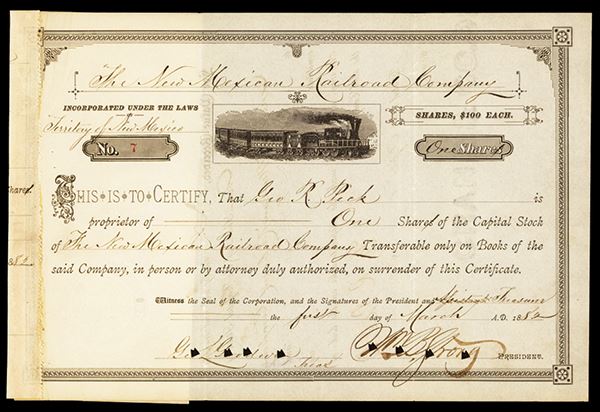 The New Mexican Railroad Company
INCORPORATED UNDER THE LAWS
Territory of New Mexico
SHARES, $100 EACH.
No. 7
One Share
THIS IS TO CERTIFY, That Geo R Peck is
proprietor of One Share of the Capital Stock
of The New Mexican Railroad Company Transferable only on Books of the
said Company, in person or by attorney duly authorized, on surrender of this Certificate.
Witness the Seal of the Corporation, and the Signatures of the President and Assistant Treasurer
the first day of March A.D. 1882
Geo L Goodwin Treas
Wm B Strong PRESIDENT.
Shares
882